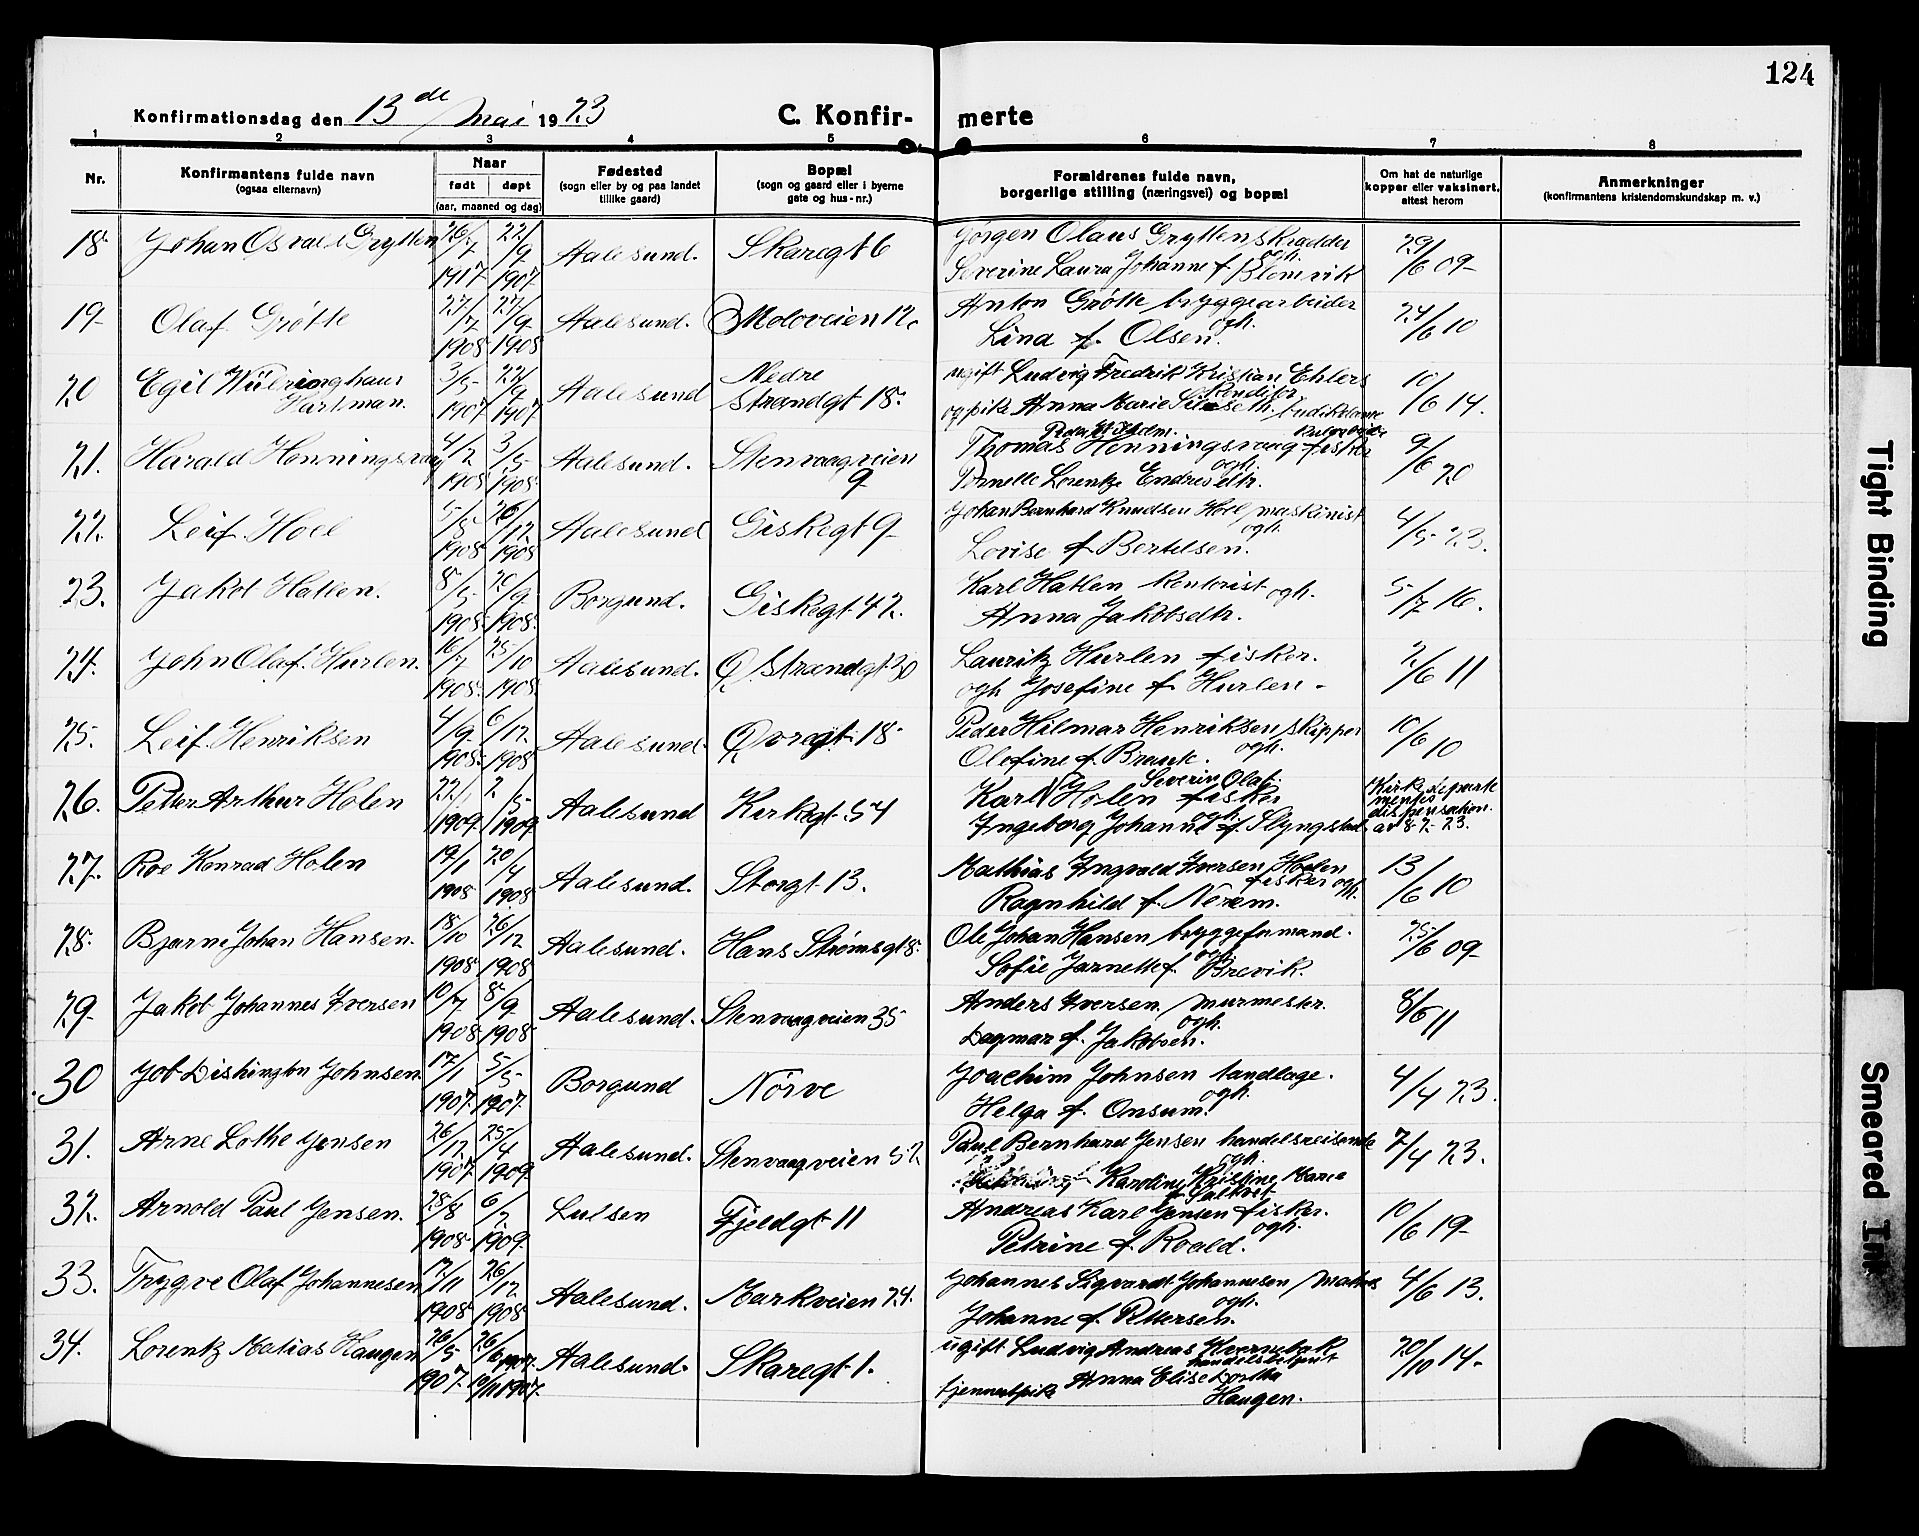 124
Konfirmationsdag den 13de Mai 1923 C. Konfirmerte
1 2 3 4 5 6 7 8
Nr. Konfirmantens fulde navn (ogsaa efternavn) Naar født døpt (aar, maaned og dag) Fødested (sogn eller by og paa landet tillike gaard) Bopæl (sogn og gaard eller i byerne gate og hus-nr.) Forældrenes fulde navn, borgerlige stilling (næringsvei) og bopæl Om hat de naturlige kopper eller vaksinert, attest herom Anmerkninger (konfirmantens kristendomskundskap m. v.)
18 Johan Osvald Grytten 22/9 1907 Aalesund. Skaregt 6 Jørgen Olaus Grytten, skrædder ogh. Severine Laura Johanne f. Blomvik 29/6 09
19 Olaf Grøtte 27/7 1908 27/9 1908 Aalesund. Moloveien 12c Anton Grøtte bryggearbeider ogh. Lina f. Olsen. 24/6 10
20 Egil Wülringhaus Hartman. 3/5 1907 22/9 1907 Aalesund Nedre Strandgt 18. ugift Ludvig Fredrik Kristian Ehlers Konditor og pike Anna Marie 10/6 14.
21. Harald Henningsvaag 4/2 1908 3/5 1908 Aalesund. Stenvaagveien 9 Thomas Peder Wilhelm Henningsvaag fisker ogh. Pernelle Lorentze Endresdtr. 9/6 20
22. Leif Hoel 5/8 1908 26/12 1908 Aalesund Giskegt 9 Johan Bernhard Knudsen Hoel, maskinist ogh. Lovise f. Bertelsen. 4/5 23.
23. Jakob Hatlen. 8/5 1908 20/9 1908. Borgund. Giskegt 42. Karl Hatlen kontorist ogh. Anna Jakobsdtr. 5/7 16.
24. John Olaf Hurlen. 16/7 1908. 25/10 1908 Aalesund. Ø. Strandgt 20 Lauritz Hurlen fisker. ogh Josefine f. Hurlen 2/6 11
25. Leif Henriksen 4/9 1908. 6/12 1908 Aalesund. Øvregt 18 Peder Hilmar Henriksen, skipper ogh. Olefine f. Brunk. 10/6 10
26. Petter Arthur Holen 22/1 1909 2/5 1909 Aalesund Kirkegt 54 Karl Severin Olai Holen fisker ogh. Ingeborg Johanne f. Slyngstad Kirkedepartementets dispensation. av 8-2-23.
27. Roe Konrad Holen 19/1 1908 20/4 1908 Aalesund. Storgt 13. Mathias Ingvald Iversen Holen fisker ogh. Ragnhild f. Nerem. 13/6 10
28. Bjarne Johan Hansen. 18/10 1908 26/12 1908 Aalesund. Hans Strømsgt 8. Ole Johan Hansen bryggeformand. ogh. Sofie Jarnette f. Brevik. 25/6 09
29 Jakob Johannes Iversen 10/7 1908 8/9 1908 Aalesund. Stenvaagveien 35 Anders Iversen, murmester. ogh. Dagmar f. Jakobsen. 8/6 11
30 Job Dishington Johnsen. 17/1 1907. 5/5 1907. Borgund Nørve Joachim Johnsen tandlæge. ogh. Helga f. Onsum. 4/4 23.
31. Arne Lothe Jensen 26/12 1907. 25/4 1909 Aalesund. Stenvaagveien 52 Paul Bernhard Jensen handelsreisende ogh. Karoline Kristine Marie 7/4 23.
32. Arnold Paul Jensen. 28/8 1908 6/2 1909. Fjeldgt 11 Andreas Karl Jensen fisker. ogh. Petrine f. Roald. 10/6 19
33. Trygve Olaf Johannesen 12/11 1908 26/12 1908 Aalesund. Parkveien 24. Johannes Sigvardt Johannesen, ogh. Johanne f. Pettersen. 4/6 13.
34. Lorentz Matias Haugen 26/5 1907. 26/6 1907. 10/11 1907. Aalesund. Skaregt 1. ugift Ludvig Andreas Kvernebak handelsbetjent tjenestepike Anna Elise Dorthea Haugen. 20/10 14
Tight Binding
Smeared Ink